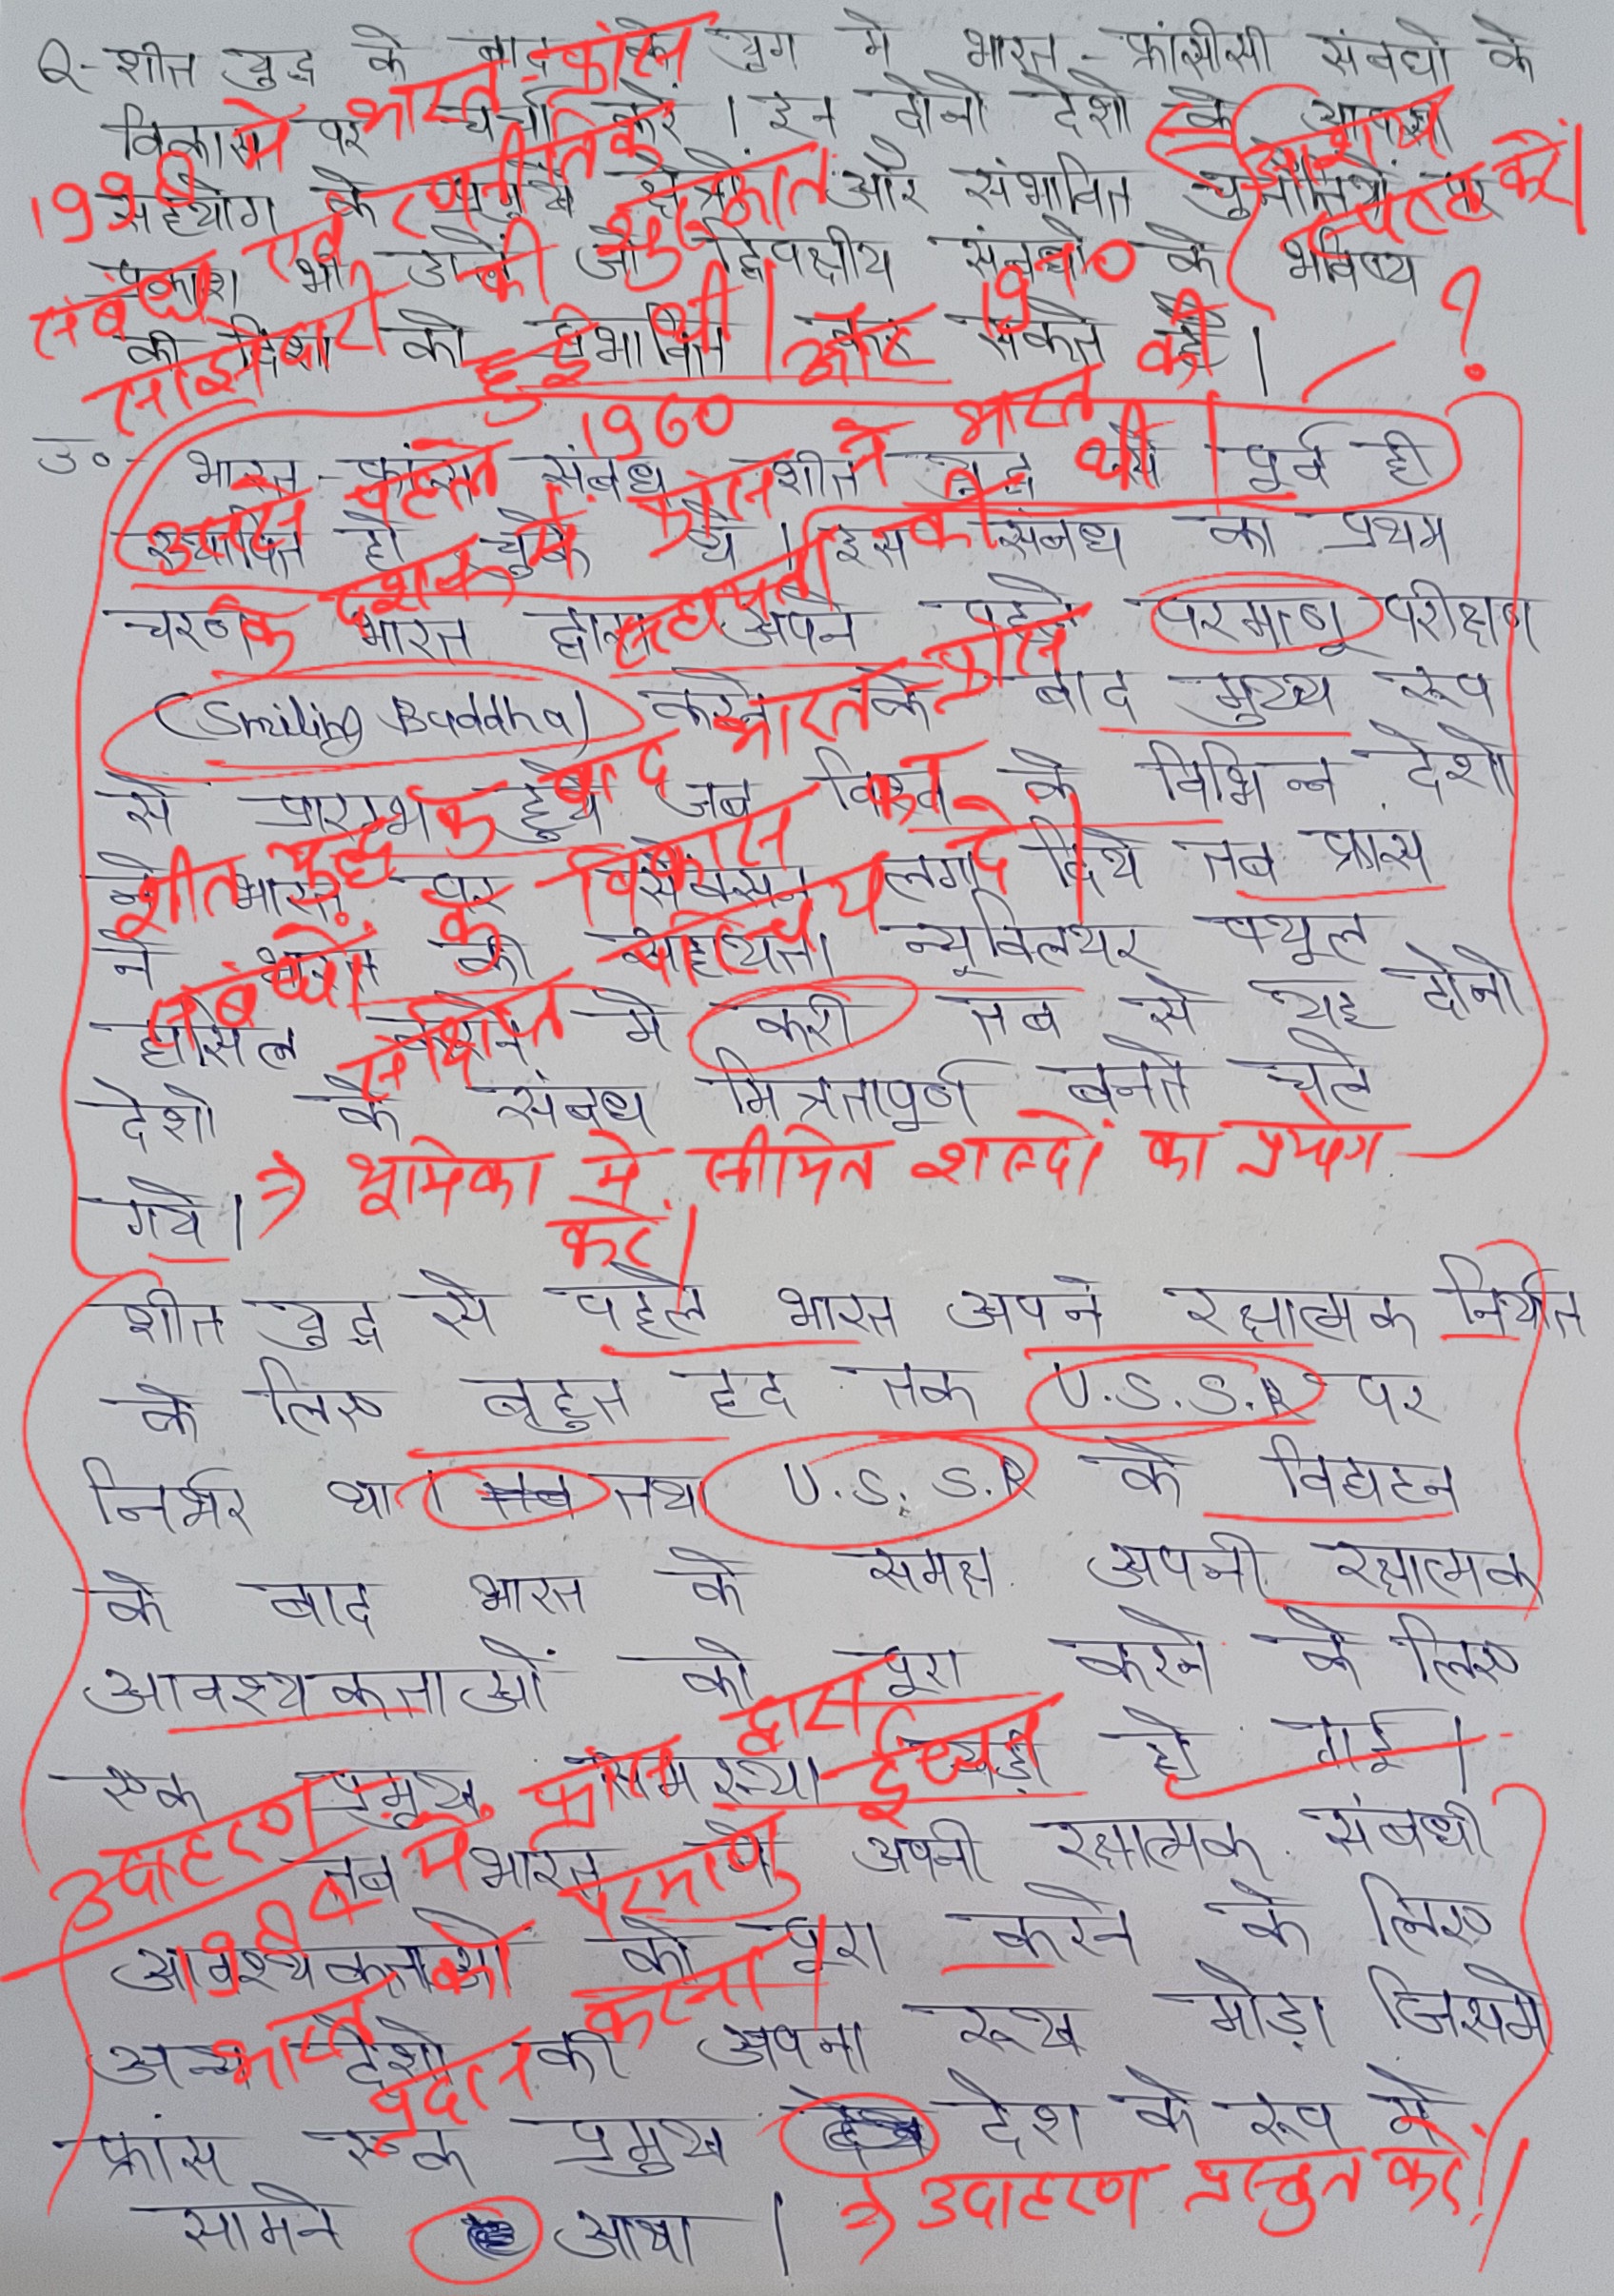 Q- शीत युद्ध के बाद के युग मे भारत - फ्रांसीसी संबधो के
विकास पर चर्चा करें । इन दोनो देशो के आपसी
सहयोग के प्रमुख क्षेत्रों और संभावित चुनौतियों पर
प्रकाश भी डाले जो द्विपक्षीय संबधो के भविष्य
की दिशा को प्रभावित कर सकते है ।
1998 मे भारत - फ्रांस
संबंध एवं रणनीतिक
साझेदारी की शुरुआत
हुई थी । और 1970 की
आशय
स्पष्ट करें।
?
उ०- भारत - फ्रांस संबध शीत युद्ध से पूर्व ही
स्थापित हो चुके थे । इस संबध का प्रथम
चरण भारत द्वारा अपने पहले परमाणू परीक्षण
(Smiling Buddha) करने के बाद मुख्य रूप
से प्रारम्भ हुये जब विश्व के विभिन्न देशो
ने भारत पर सेंक्सन लगा दिये तब फ्रांस
ने भारत की सहायता न्यूक्लियर फ्यूल
हासिल करने मे करी तब से यह दोनो
देशो के संबध मित्रतापूर्ण बनते चले
गये ।
उससे पहले 1960
के दशक में फ्रांस ने भारत
की सहायता की थी ।
शीत युद्ध के बाद भारत - फ्रांस
संबंधों के विकास का
संक्षिप्त परिचय दे ।
→ भूमिका मे सीमित शब्दों का प्रयोग
करें।
शीत युद्ध से पहले भारत अपने रक्षात्मक निर्यात
के लिए बहुत हद तक U.S.S.R पर
निर्भर था । तथा U.S.S.R के विघटन
के बाद भारत के समक्ष अपनी रक्षात्मक
आवश्यकताओं को पूरा करने के लिए
एक प्रमुख समस्या खड़ी हो गई ।
तब भारत ने अपनी रक्षात्मक संबधी
आवश्यकताओ को पूरा करने के लिए
अन्य देशो की अपना रूख मोड़ा जिसमे
फ्रांस एक प्रमुख देश के रूप मे
सामने आया ।
उदाहरण में फ्रांस द्वारा
परमाणु ईंधन
भारत को
प्रदान करना ।
→ उदाहरण प्रस्तुत करें ।